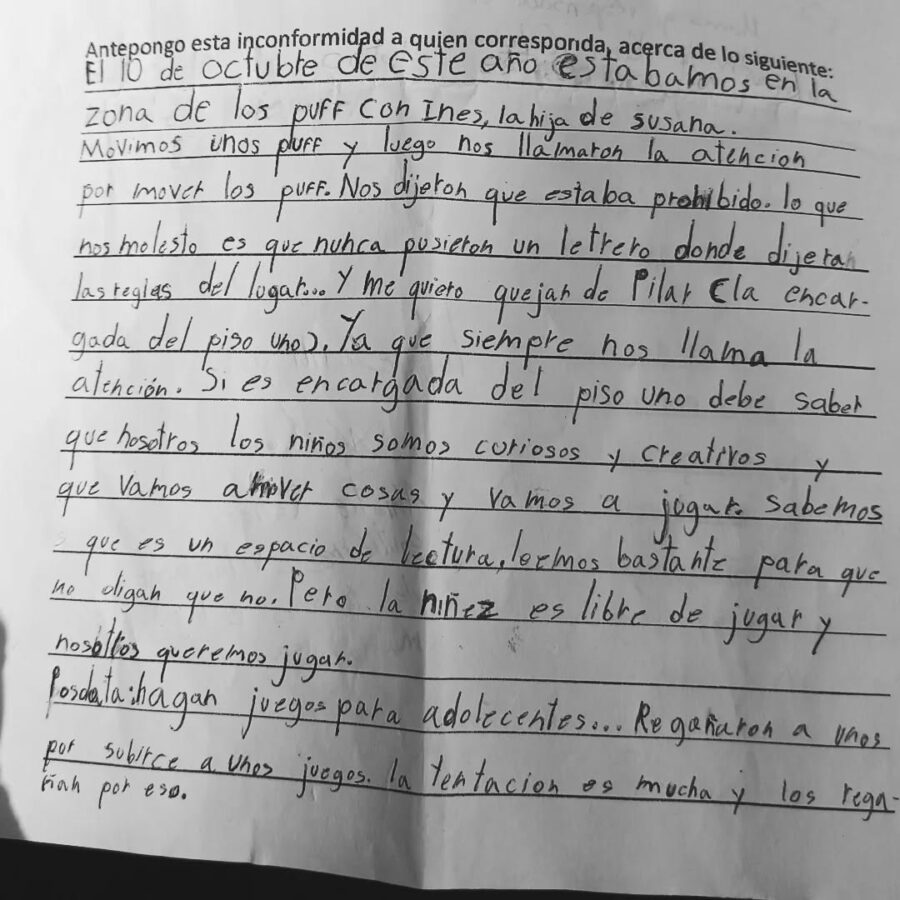 Antepongo esta inconformidad a quien corresponda, acerca de lo siguiente:
El 10 de octubre de este año estabamos en la
zona de los puff con Ines, la hija de susana.
Movimos unos puff y luego nos llamaron la atencion
por mover los puff. Nos dijeron que estaba prohibido. lo que
nos molesto es que nunca pusieron un letrero donde dijeran
las reglas del lugar... Y me quiero quejar de Pilar (la encar-
gada del piso uno). Ya que siempre nos llama la
atención. Si es encargada del piso uno debe saber
que nosotros los niños somos curiosos y creativos y
que vamos a mover cosas y vamos a jugar. Sabemos
que es un espacio de lectura, leemos bastante para que
no digan que no. Pero la niñez es libre de jugar y
nosotros queremos jugar.
Posdata: hagan juegos para adolecentes... Regañaron a unos
por subirce a unos juegos. la tentacion es mucha y los rega-
ñan por eso.